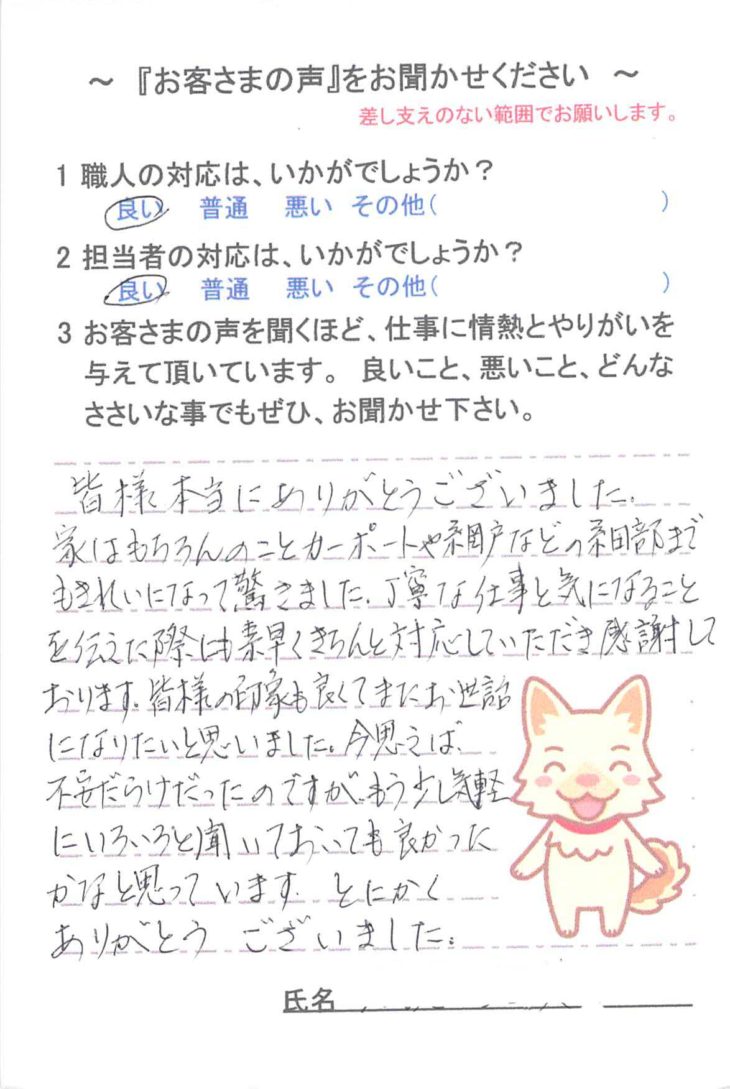 ～ 『お客さまの声』をお聞かせください ～
差し支えのない範囲でお願いします。
1 職人の対応は、いかがでしょうか？
良い 普通 悪い その他( )
2 担当者の対応は、いかがでしょうか？
良い 普通 悪い その他( )
3 お客さまの声を聞くほど、仕事に情熱とやりがいを
与えて頂いています。 良いこと、悪いこと、どんな
ささいな事でもぜひ、お聞かせ下さい。
皆様本当にありがとうございました。
家はもちろんのことカーポートや網戸などの細部まで
もきれいになって驚きました。丁寧な仕事と気になること
を伝えた際にも素早くきちんと対応していただき感謝して
おります。皆様の印象も良くてまたお世話
になりたいと思いました。今思えば、
不安だらけだったのですが、もう少し気軽
にいろいろと聞いておいても良かった
かなと思っています。とにかく
ありがとう ございました。
氏名